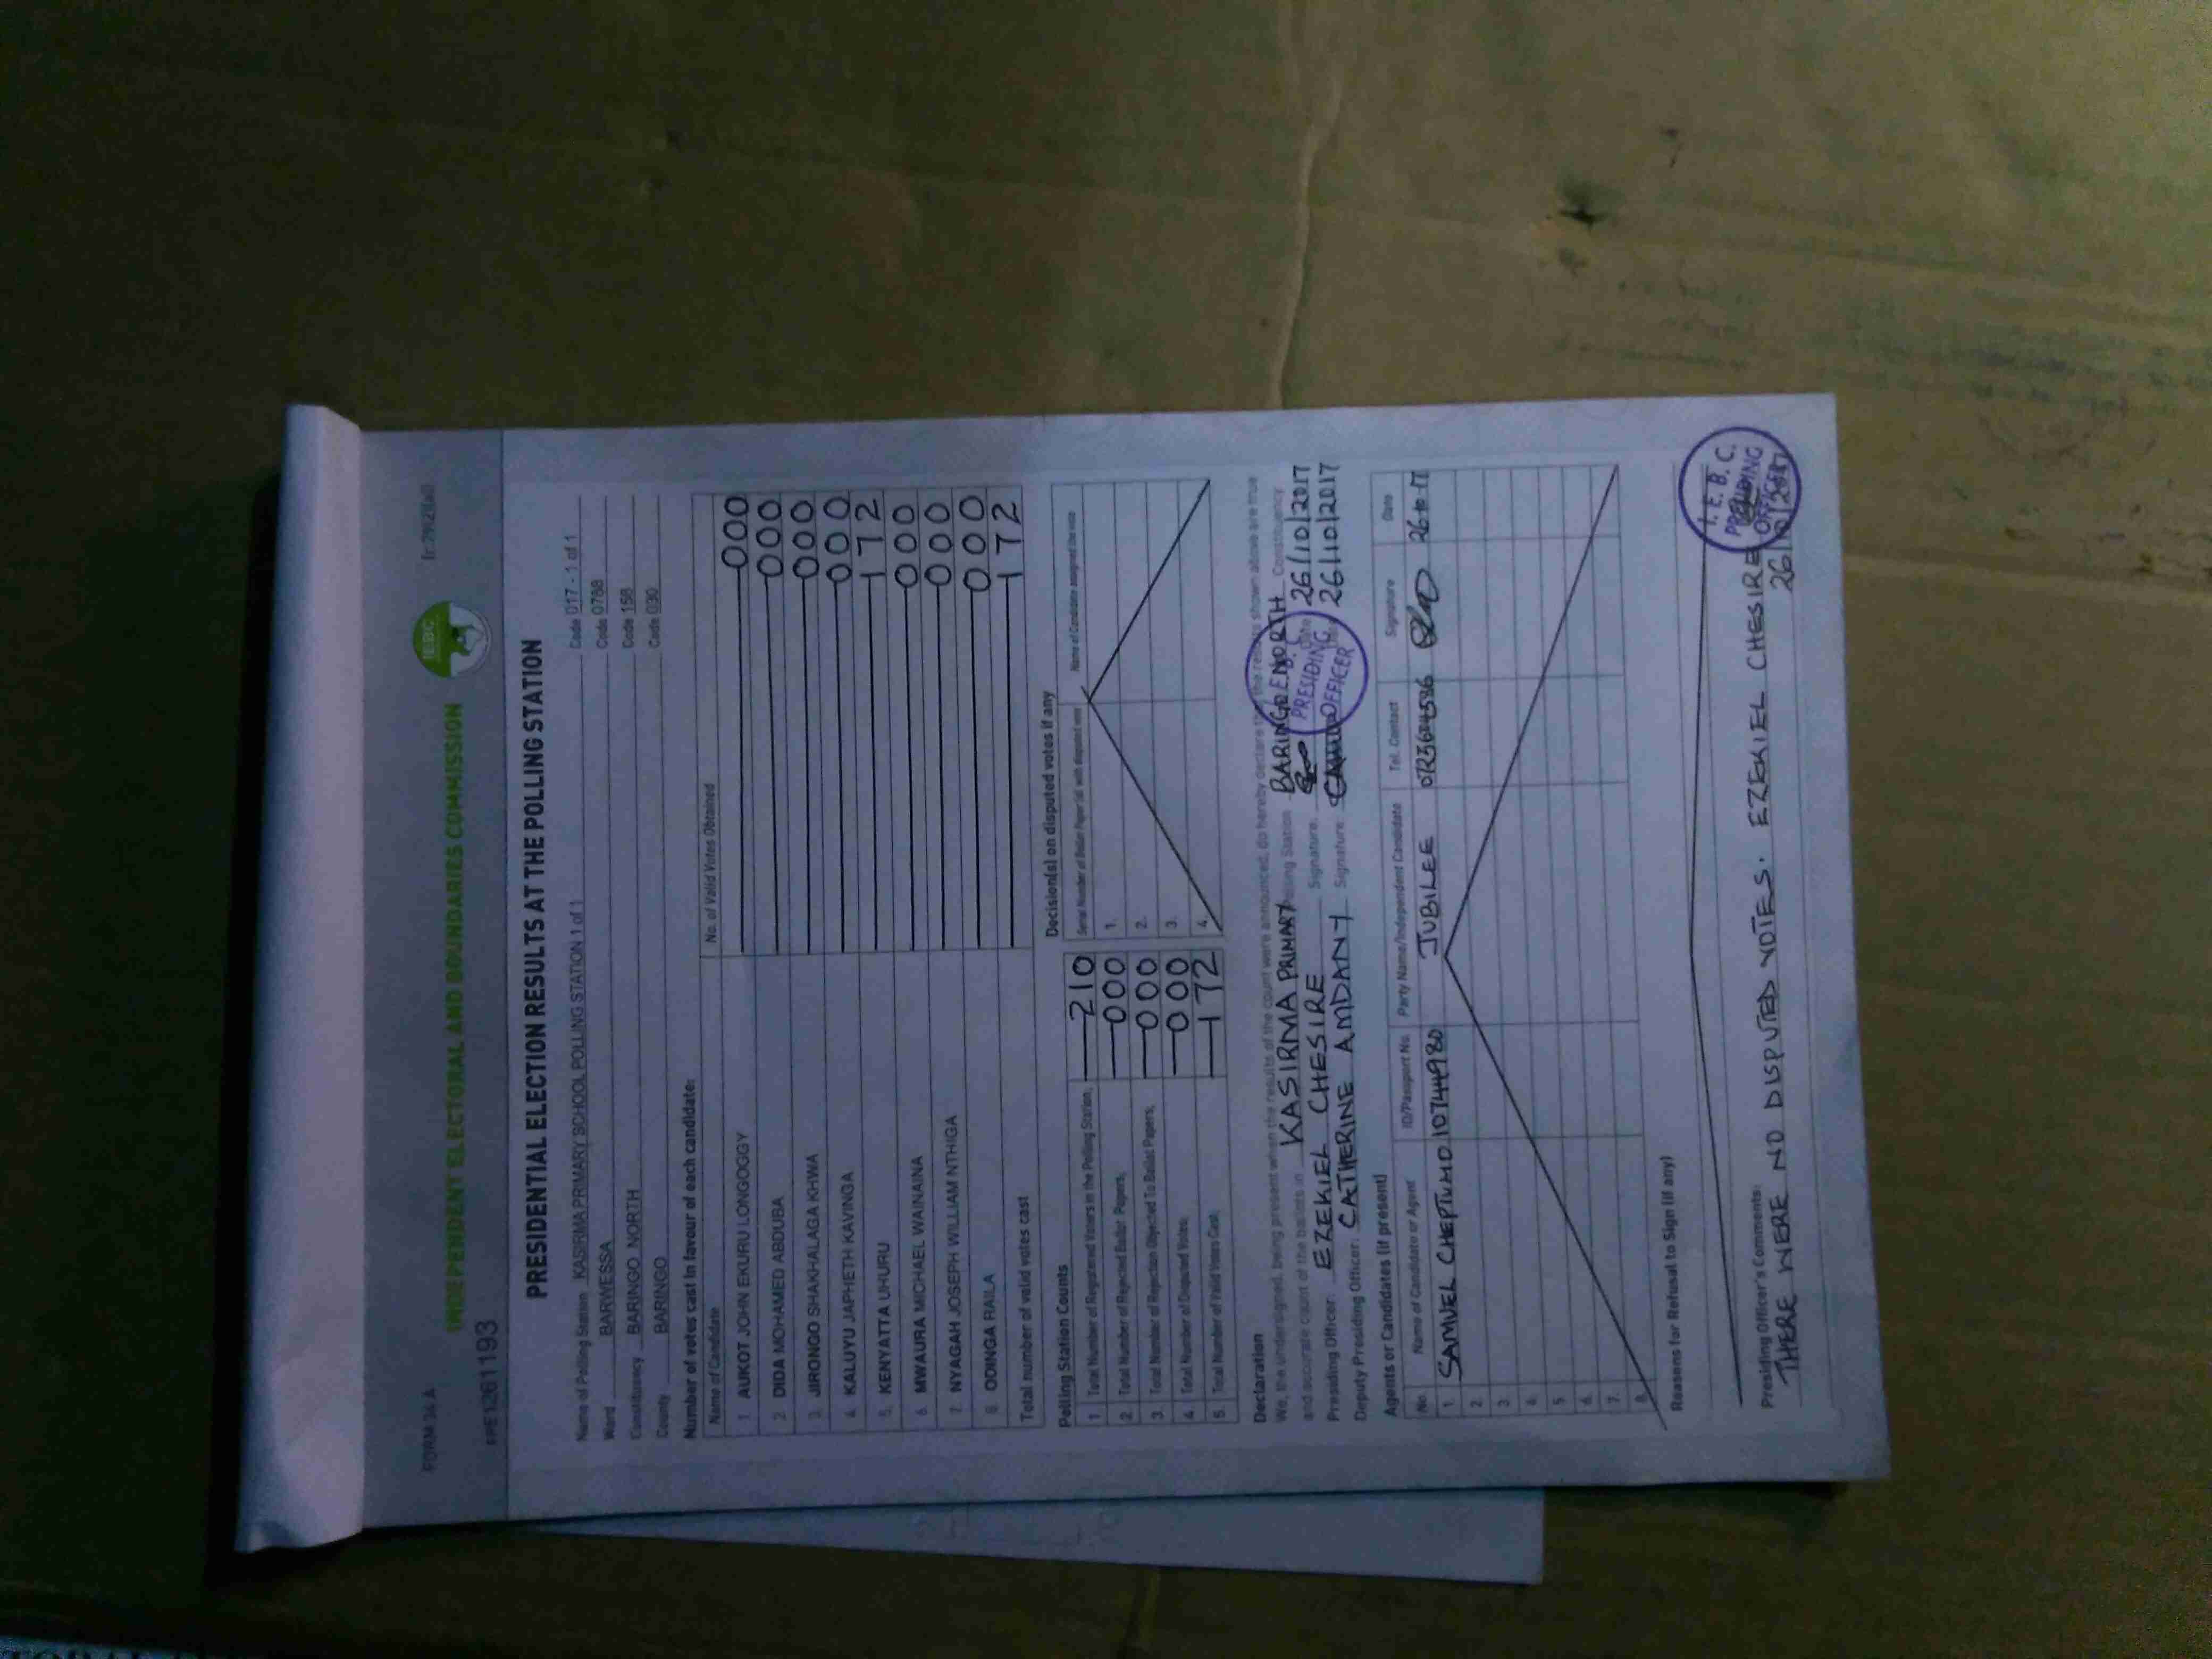 FORM 34 A
INDEPENDENT ELECTORAL AND BOUNDARIES COMMISSION
IEBC
PRESIDENTIAL ELECTION RESULTS AT THE POLLING STATION
Name of Polling Station KASIRMA PRIMARY SCHOOL POLLING STATION 1 of 1 Code 017 - 1 of 1
Ward BARWESSA Code 0788
Constituency BARINGO NORTH Code 158
County BARINGO Code 030
Number of votes cast in favour of each candidate:
Name of Candidate No. of Valid Votes Obtained
1. AUKOT JOHN EKURU LONGOGGY 000
2. DIDA MOHAMED ABDUBA 000
3. JIRONGO SHAKHALAGA KHWA 000
4. KALUYU JAPHETH KAVINGA 000
5. KENYATTA UHURU 172
6. MWAURA MICHAEL WAINAINA 000
7. NYAGAH JOSEPH WILLIAM NTHIGA 000
8. ODINGA RAILA 000
Total number of valid votes cast 172
Polling Station Counts
1. Total Number of Registered Voters in the Polling Station; 210
2. Total Number of Rejected Ballot Papers; 000
3. Total Number of Rejection Objected To Ballot Papers; 000
4. Total Number of Disputed Votes; 000
5. Total Number of Valid Votes Cast; 172
Decision(s) on disputed votes if any
Serial Number of Ballot Paper(s) with disputed vote Name of Candidate assigned the vote
1.
2.
3.
4.
Declaration
We, the undersigned, being present when the results of the count were announced, do hereby declare that the results shown above are true
and accurate count of the ballots in KASIRMA PRIMARY Polling Station BARINGO NORTH Constituency
Presiding Officer: EZEKIEL CHESIRE Signature: Date 26/10/2017
Deputy Presiding Officer: CATHERINE AMDANY Signature: 26/10/2017
PRESIDING
OFFICER
Agents or Candidates (if present)
No. Name of Candidate or Agent ID/Passport No. Party Name/Independent Candidate Tel. Contact Signature Date
1. SAMUEL CHEPTUMO 10744980 JUBILEE 26-10-17
2.
3.
4.
5.
6.
7.
8.
Reasons for Refusal to Sign (if any)
Presiding Officer's Comments:
THERE WERE NO DISPUTED VOTES. EZEKIEL CHESIRE
26/10/2017
I. E. B. C.
PRESIDING
OFFICER